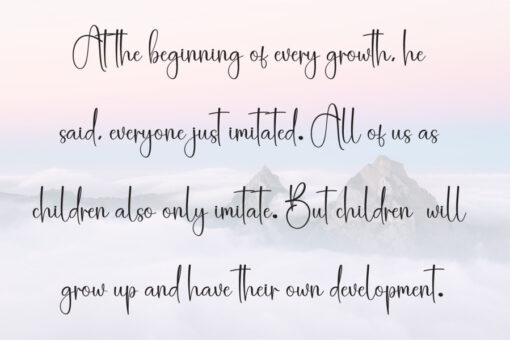 At the beginning of every growth, he
said, everyone just imitated. All of us as
children also only imitate. But children will
grow up and have their own development.